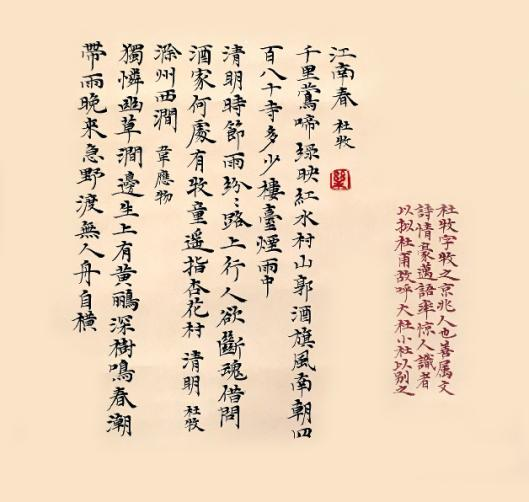 杜牧字牧之京兆人也喜属文
詩情豪邁語率惊人識者
以拟杜甫故呼大杜小杜以别之
江南春 杜牧
千里鶯啼緑映紅水村山郭酒旗風南朝四
百八十寺多少樓臺煙雨中
清明時節雨紛〻路上行人欲斷魂借問
酒家何處有牧童遥指杏花村 清明 杜牧
滁州西澗 韋應物
獨憐幽草澗邊生上有黄鸝深樹鳴春潮
帶雨晚来急野渡無人舟自横